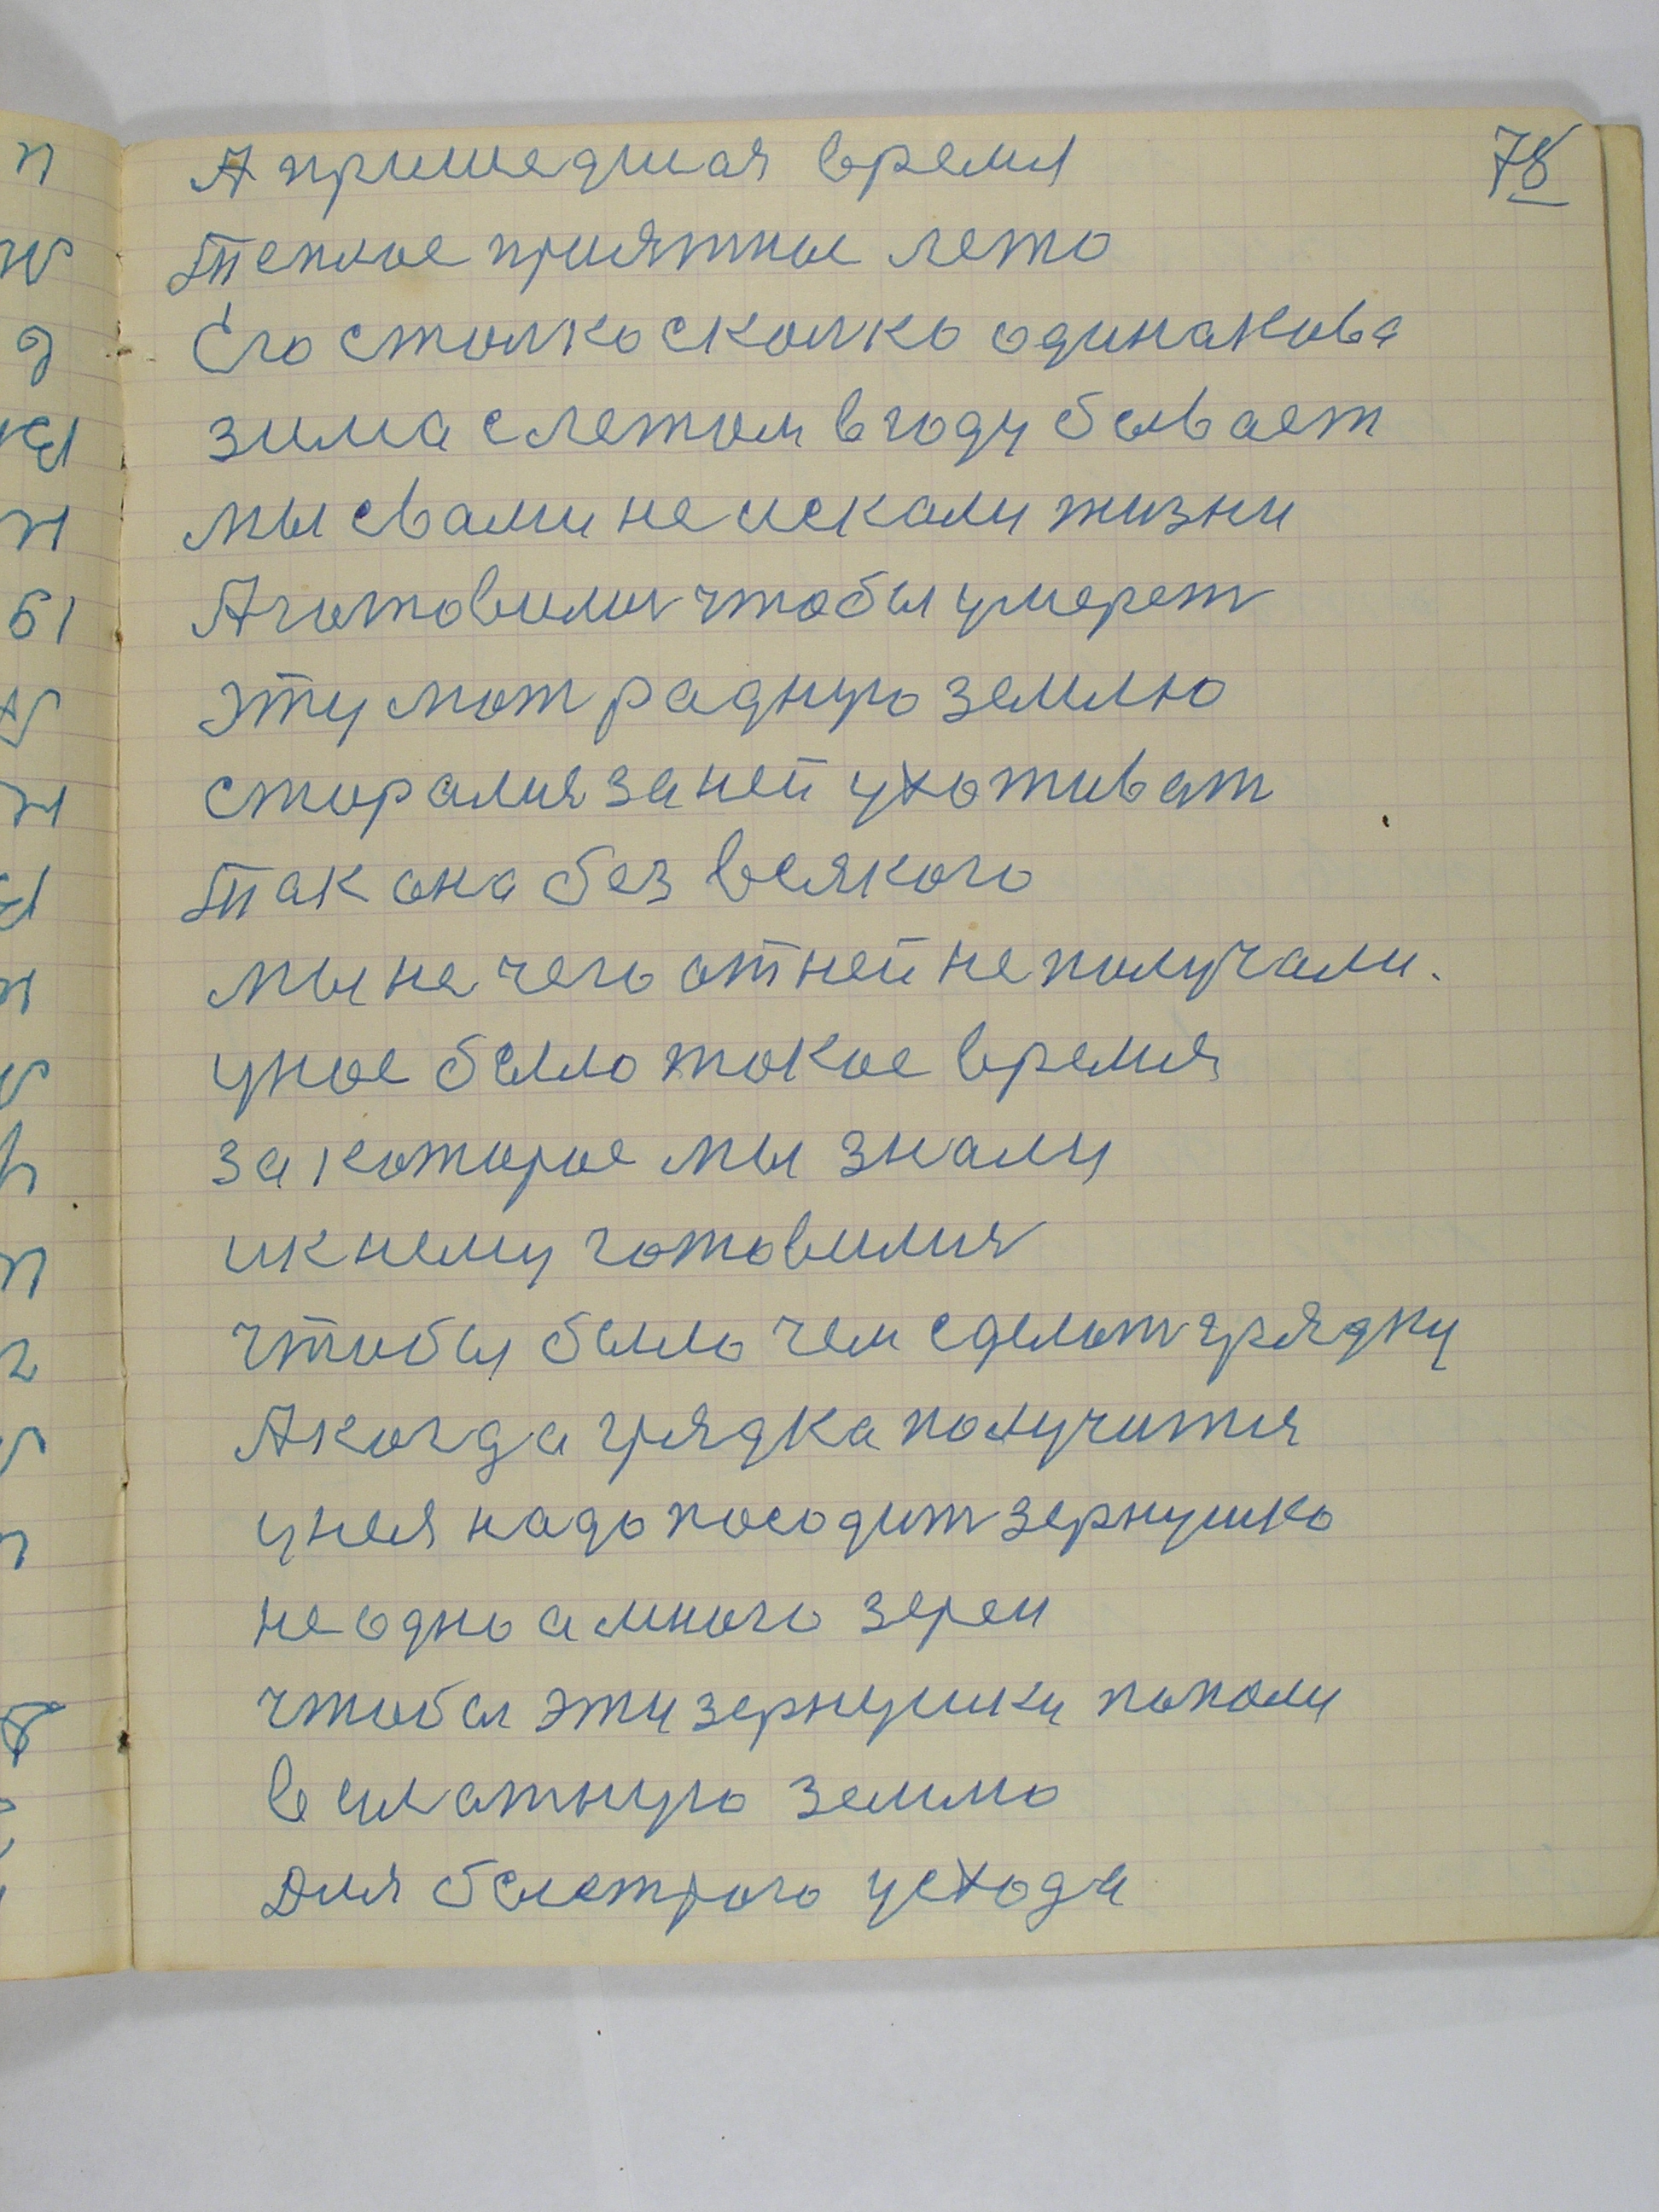 78
А пришедшая время
Теплое приятное лето
Его столко сколко одинакова
зима слетом вгоду бывает
мы свами не искали жизни
А готовилис чтобы умерет
эту мат радную землю
сторалися за ней ухотиват
Так она без всякого
мы не чего отней не получали.
уное было токое время
за которое мы знали
ик нему готовилися
чтобы было чем сделат грядку
А когда грядка получится
унея надо посодит зернушко
не одно а много зерен
чтобы эти зернушки попали
в землю
Для быстрого усхода